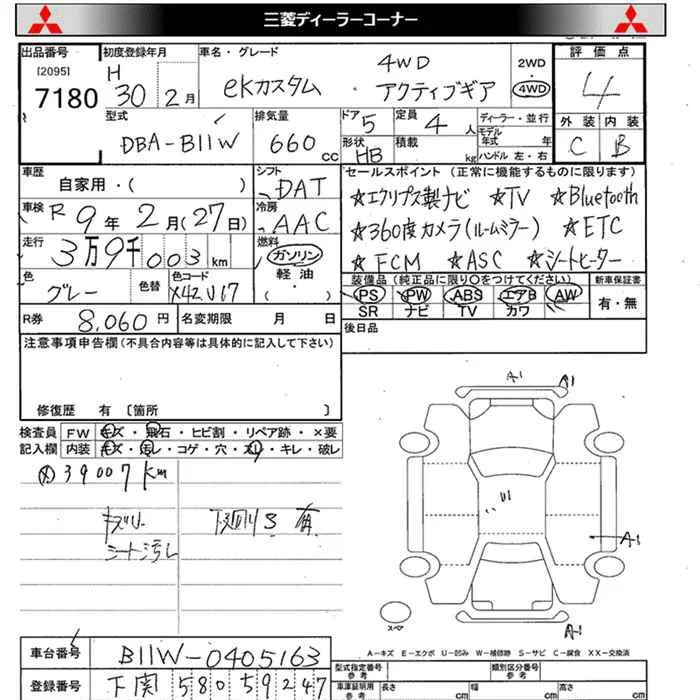 三菱ディーラーコーナー
出品番号 初度登録年月 車名・グレード 評価点
[2095] 7180 H 30 2月 eKカスタム 4WD ・アクティブギア 2WD 4WD 4
型式 排気量 ドア 定員 ディーラー・並行 外装 内装
DBA-B11W 660cc 5 4人 モデル年式 年 C B
形状 HB 積載 kg ハンドル 左・右
車歴 シフト セールスポイント (正常に機能するものに限ります)
自家用・( ) DAT ☆エクリプス製ナビ ☆TV ☆Bluetooth
車検 R 9年 2月(27日) 冷房 AAC ☆360度カメラ(ルームミラー) ☆ETC
走行 3万9千003km 燃料 ガソリン 軽油 ・( ) ☆FCM ☆ASC ☆シートヒーター
色 グレー 色替 色コード X42U67 装備品 (純正品に限り○をつけてください) 新車保証書
PS PW ABS エアB AW 有・無
SR ナビ TV カワ
R券 8,060円 名変期限 月 日 後日品
注意事項申告欄(不具合内容等は具体的に記入して下さい)
修復歴 有 〔箇所 〕
検査員 FW キズ・飛石・ヒビ割・リペア跡・×要
記入欄 内装 キズ・汚レ・コゲ・穴・スリ・キレ・破レ
39007km
シート汚レ
A1 A1
U1
A1
A-1
スペア
A-キズ E-エクボ U-凹み W-補修跡 S-サビ C-腐食 XX-交換済
車台番号 B11W-0405163 型式指定番号 参考 類別区分番号 参考
登録番号 下関 580 59247 車庫証明用 参考 長さ cm 幅 cm 高さ cm